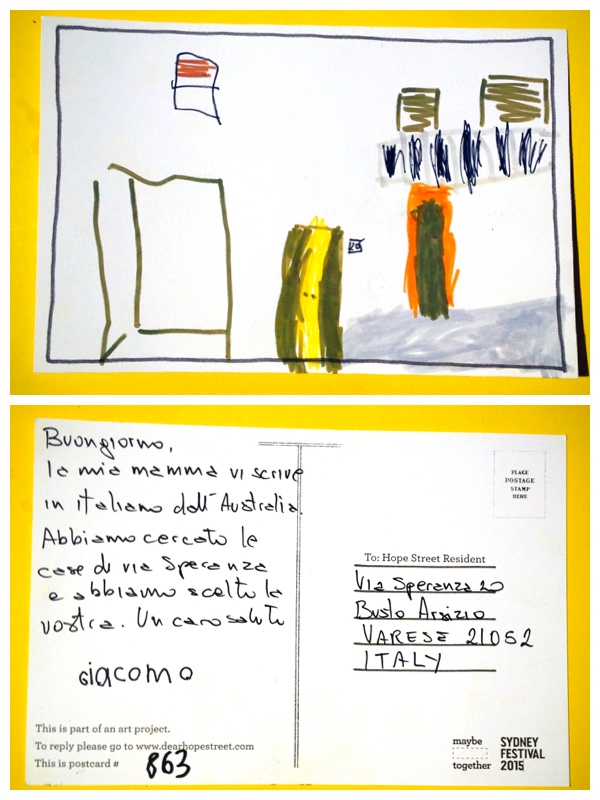 Buongiorno,
la mia mamma vi scrive
in italiano dall'Australia.
Abbiamo cercato le
case di via Speranza
e abbiamo scelto la
vostra. Un caro saluto
Giacomo
This is part of an art project.
To reply please go to www.dearhopestreet.com
This is postcard # 863
PLACE
POSTAGE
STAMP
HERE
To: Hope Street Resident
Via Speranza 20
Busto Arsizio
VARESE 21052
ITALY
maybe
together
SYDNEY
FESTIVAL
2015